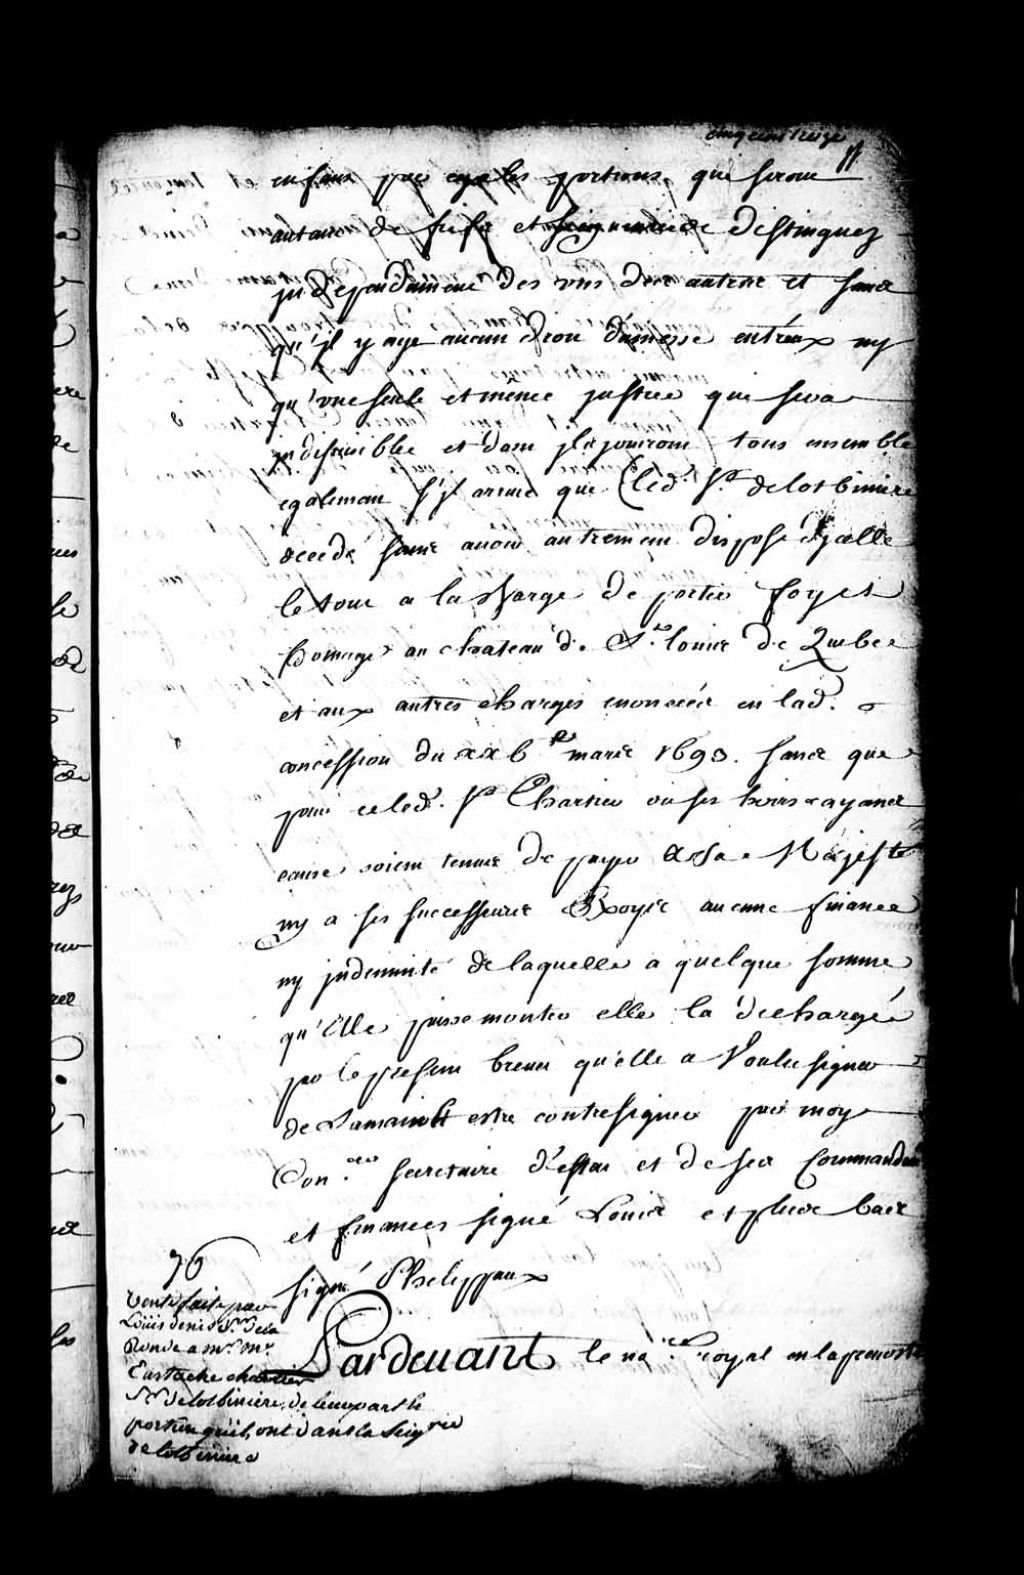 cinq cens treize
11
enfans par egales portions que seront
autant de fiefs et seigneuries distinguez
jndependament des uns des autres et sans
qu'jl y aye aucun droit d'ainesse entr'eux ny
qu'une seule et mesme justice que sera
jndivisible et dont jls jouiront tous ensemble
egalement s'jl arrive que led. Sr. de lotbiniere
decede sans avoir autrement dispose d'jcelle
le tout a la charge de porter foy et
homage au chateau de St. louis de Quebec
et aux autres charges enoncées en lad.
concession du xxb.e mars 1693. sans que
pour ce led. Sr Chartier ou ses hoirs & ayans
cause soient tenus de payer a Sa Majesté
ny a ses successeurs Roys aucune finance
ny jndemnité de laquelle a quelque somme
qu'Elle puisse monter elle la dechargé
par le present brevet qu'elle a voulu signer
de sa main et estre contresigner par moy
Con.er secretaire d'estat et de ses Commandem
et finances signé Louis et plus bas
signé Phelyppaux
Pardevant le no.re Royal en la prevosté
76
Vente faite par
Loüis denis Sr. de la
Ronde a Mr. Mr.
Eustache chartier
Sr. de lotbiniere, de leur part &
portion qu'ils ont dans la Seig.rie
de lotbiniere